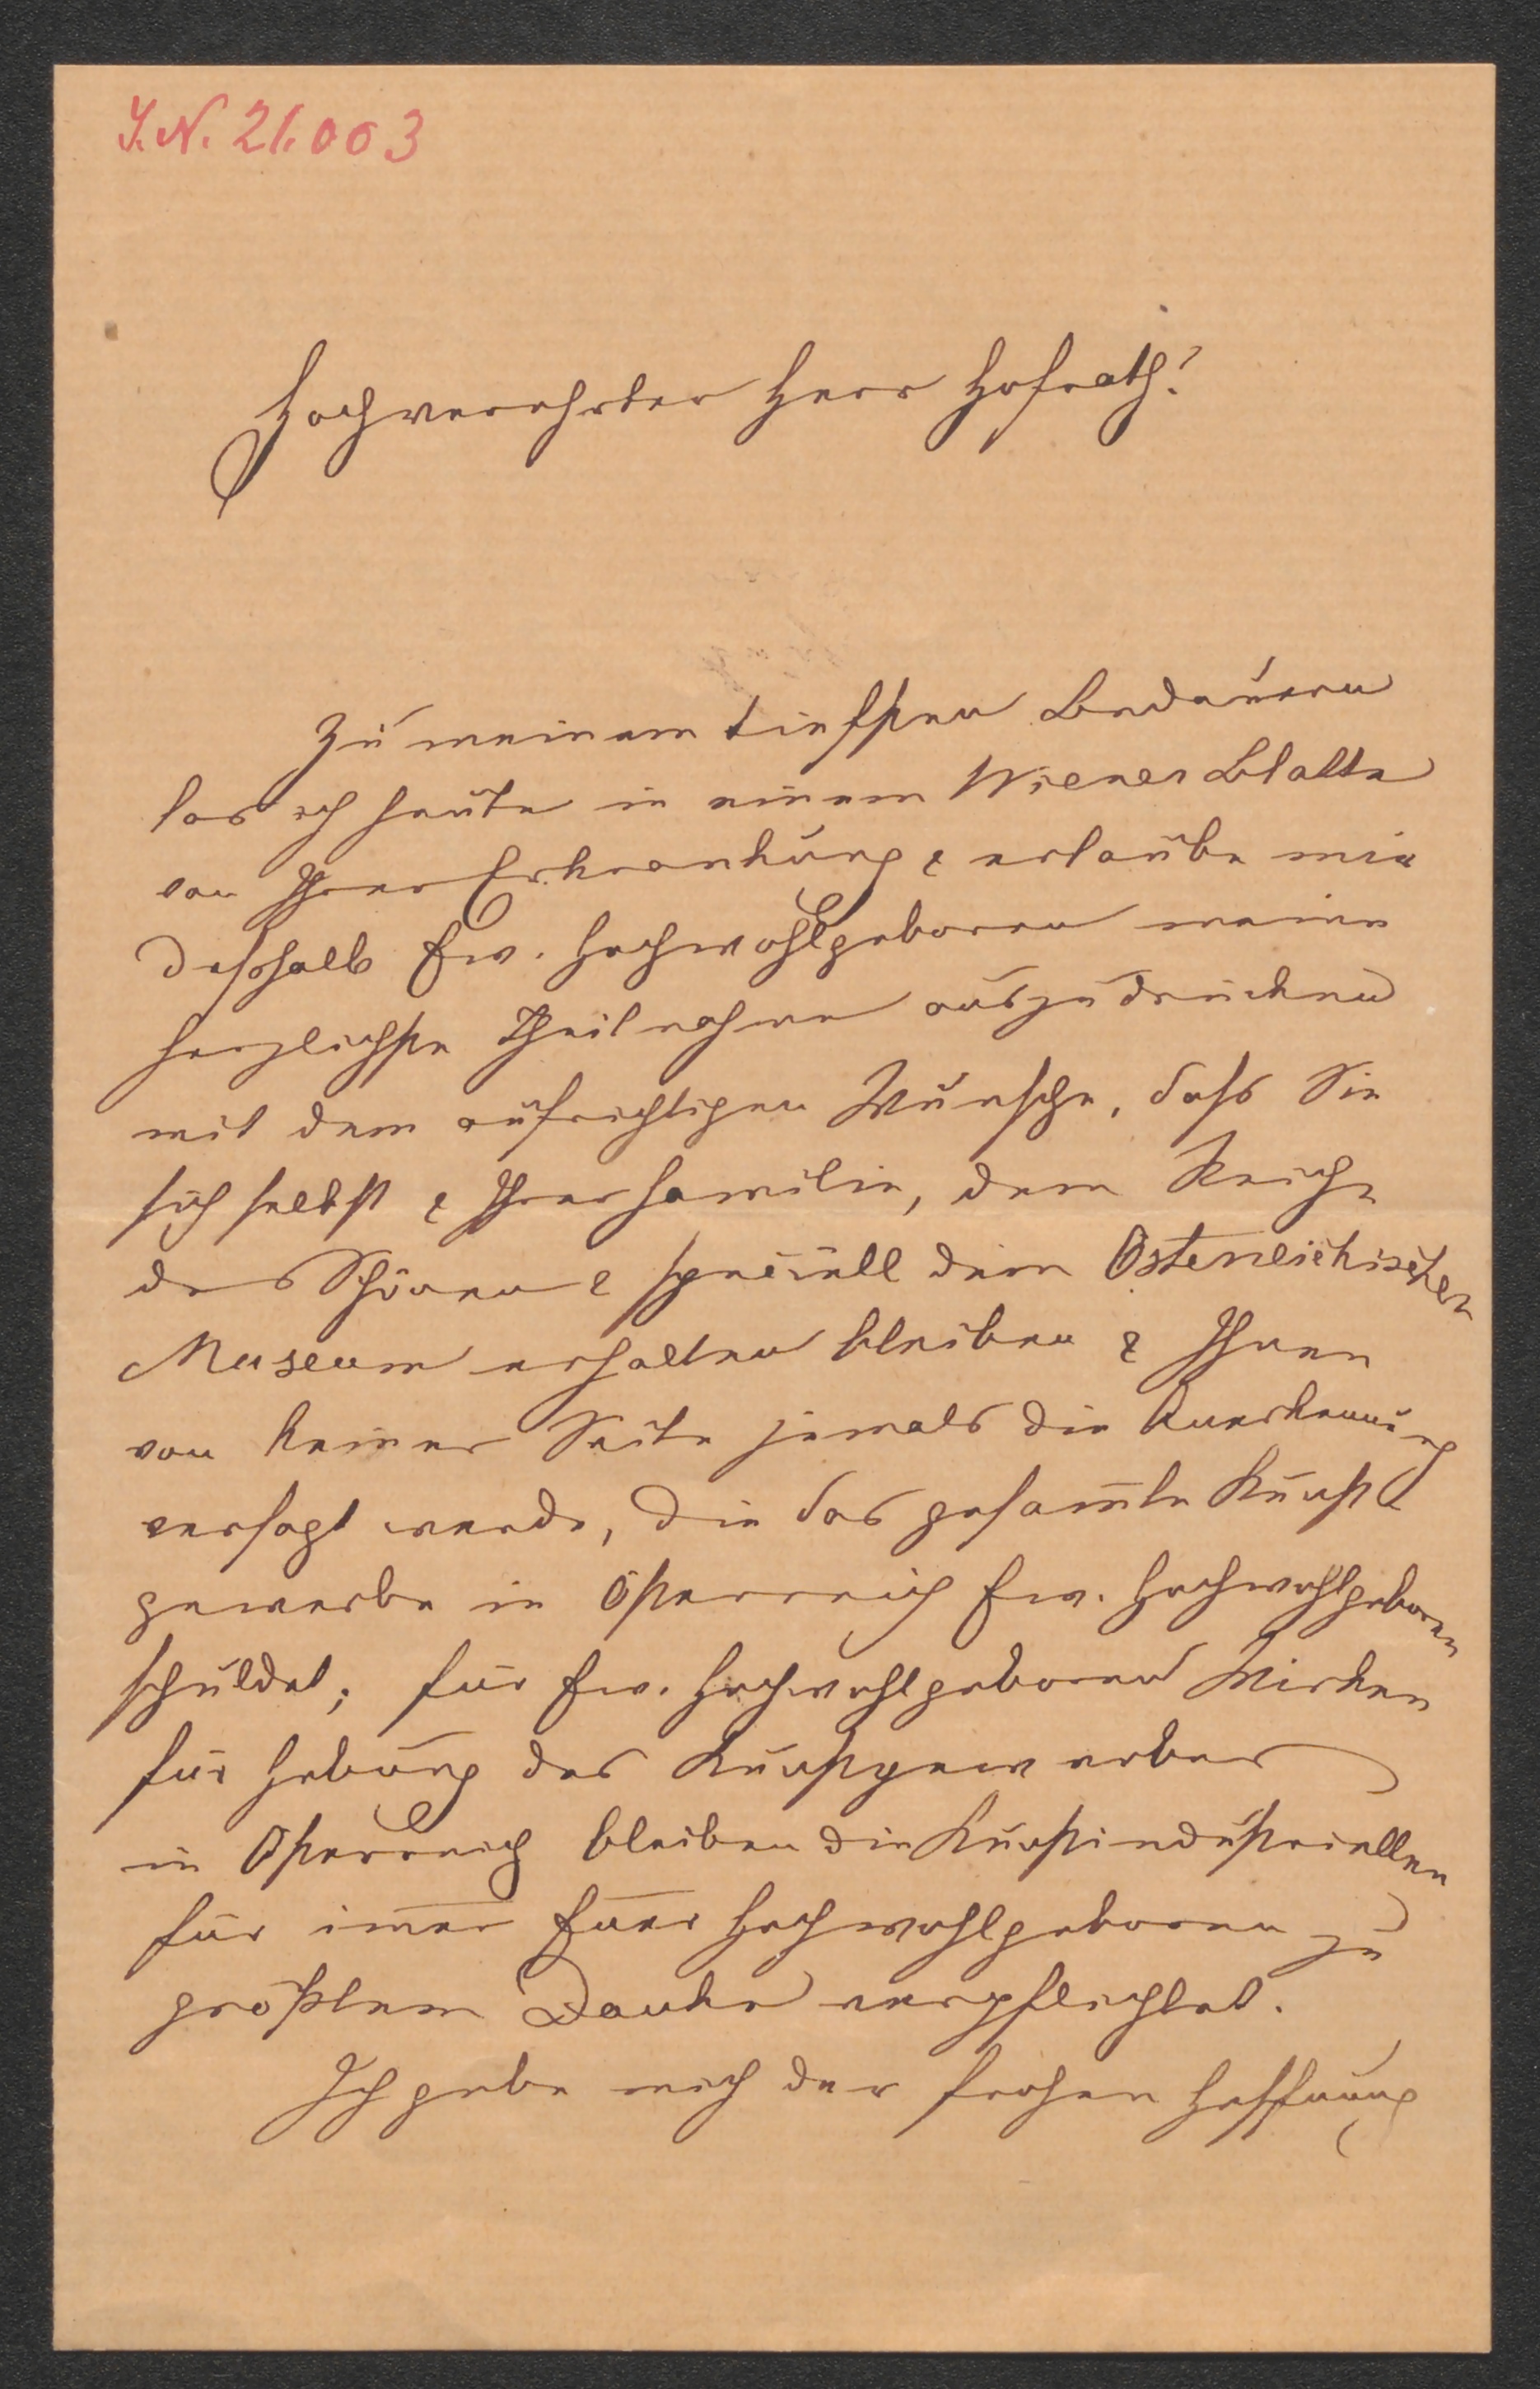 J.N. 21.003
Hochverehrter Herr Hofrath!
Zu meinem tiefsten Bedauern
las ich heute in einem Wiener Blatte
von Ihrer Erkrankung & erlaube mir
deßhalb Ew. Hochwohlgeboren meine
herzlichste Theilnahme auszudrücken
mit dem aufrichtigen Wunsche, daß Sie
sich selbst & Ihrer Familie, dem Reiche
des Schönen & speciell dem Österreichischen
Museum erhalten bleiben & Ihnen
von keiner Seite jemals die Anerkennung
versagt werde, die das gesam̅te Kunst
gewerbe in Österreich Ew. Hochwohlgeboren
schuldet; für Ew. Hochwohlgeboren Wirken
für Hebung des Kunstgewerbes
in Österreich bleiben die Kunstindustriellen
für im̅er Euer Hochwohlgeboren zu
größtem Danke verpflichtet.
Ich gebe mich der frohen Hoffnung